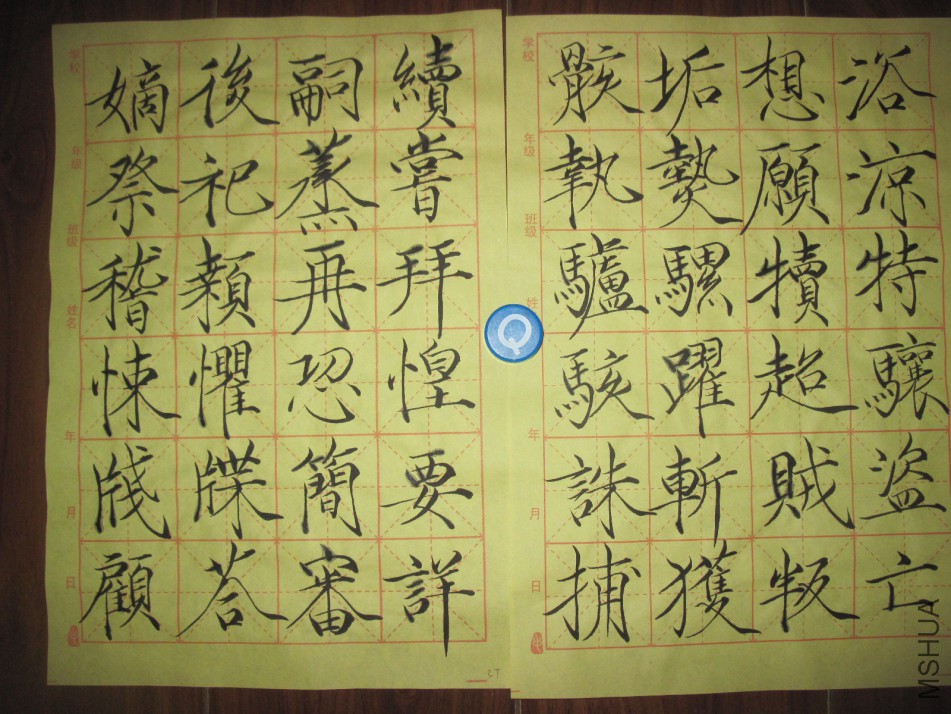 嫡後嗣續
祭祀蒸嘗
稽顙再拜
悚懼恐惶
牋牒簡要
顧荅審詳
骸垢想浴
執熱願涼
驢騾犢特
駭躍超驤
誅斬賊盜
捕獲叛亡
学校
年级
班级
姓名
年
月
日
学校
年级
班级
姓
年
月
日
Q
MSHUA